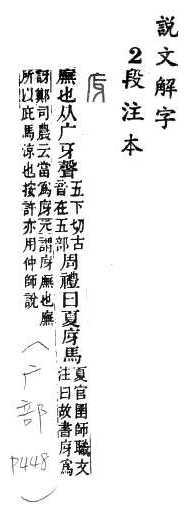 説文解字
2段注本
庌
廡也从广牙聲五下切古音在五部周禮曰夏庌馬夏官圉師職文注曰故書庌爲
訝鄭司農云當爲庌元謂庌廡也廡
所以庇馬涼也按許亦用仲師說
(广部 P448)